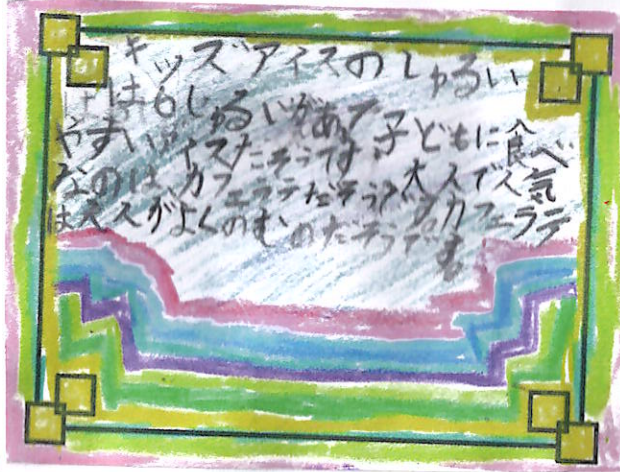 キッズアイスのしゅるい
は6しゅるいがあって子どもに食べ
やすいアイスだそうです。大人で人気
なのは、カフェラテだそうです。カフェラテ
は大人がよくのむのだそうです。